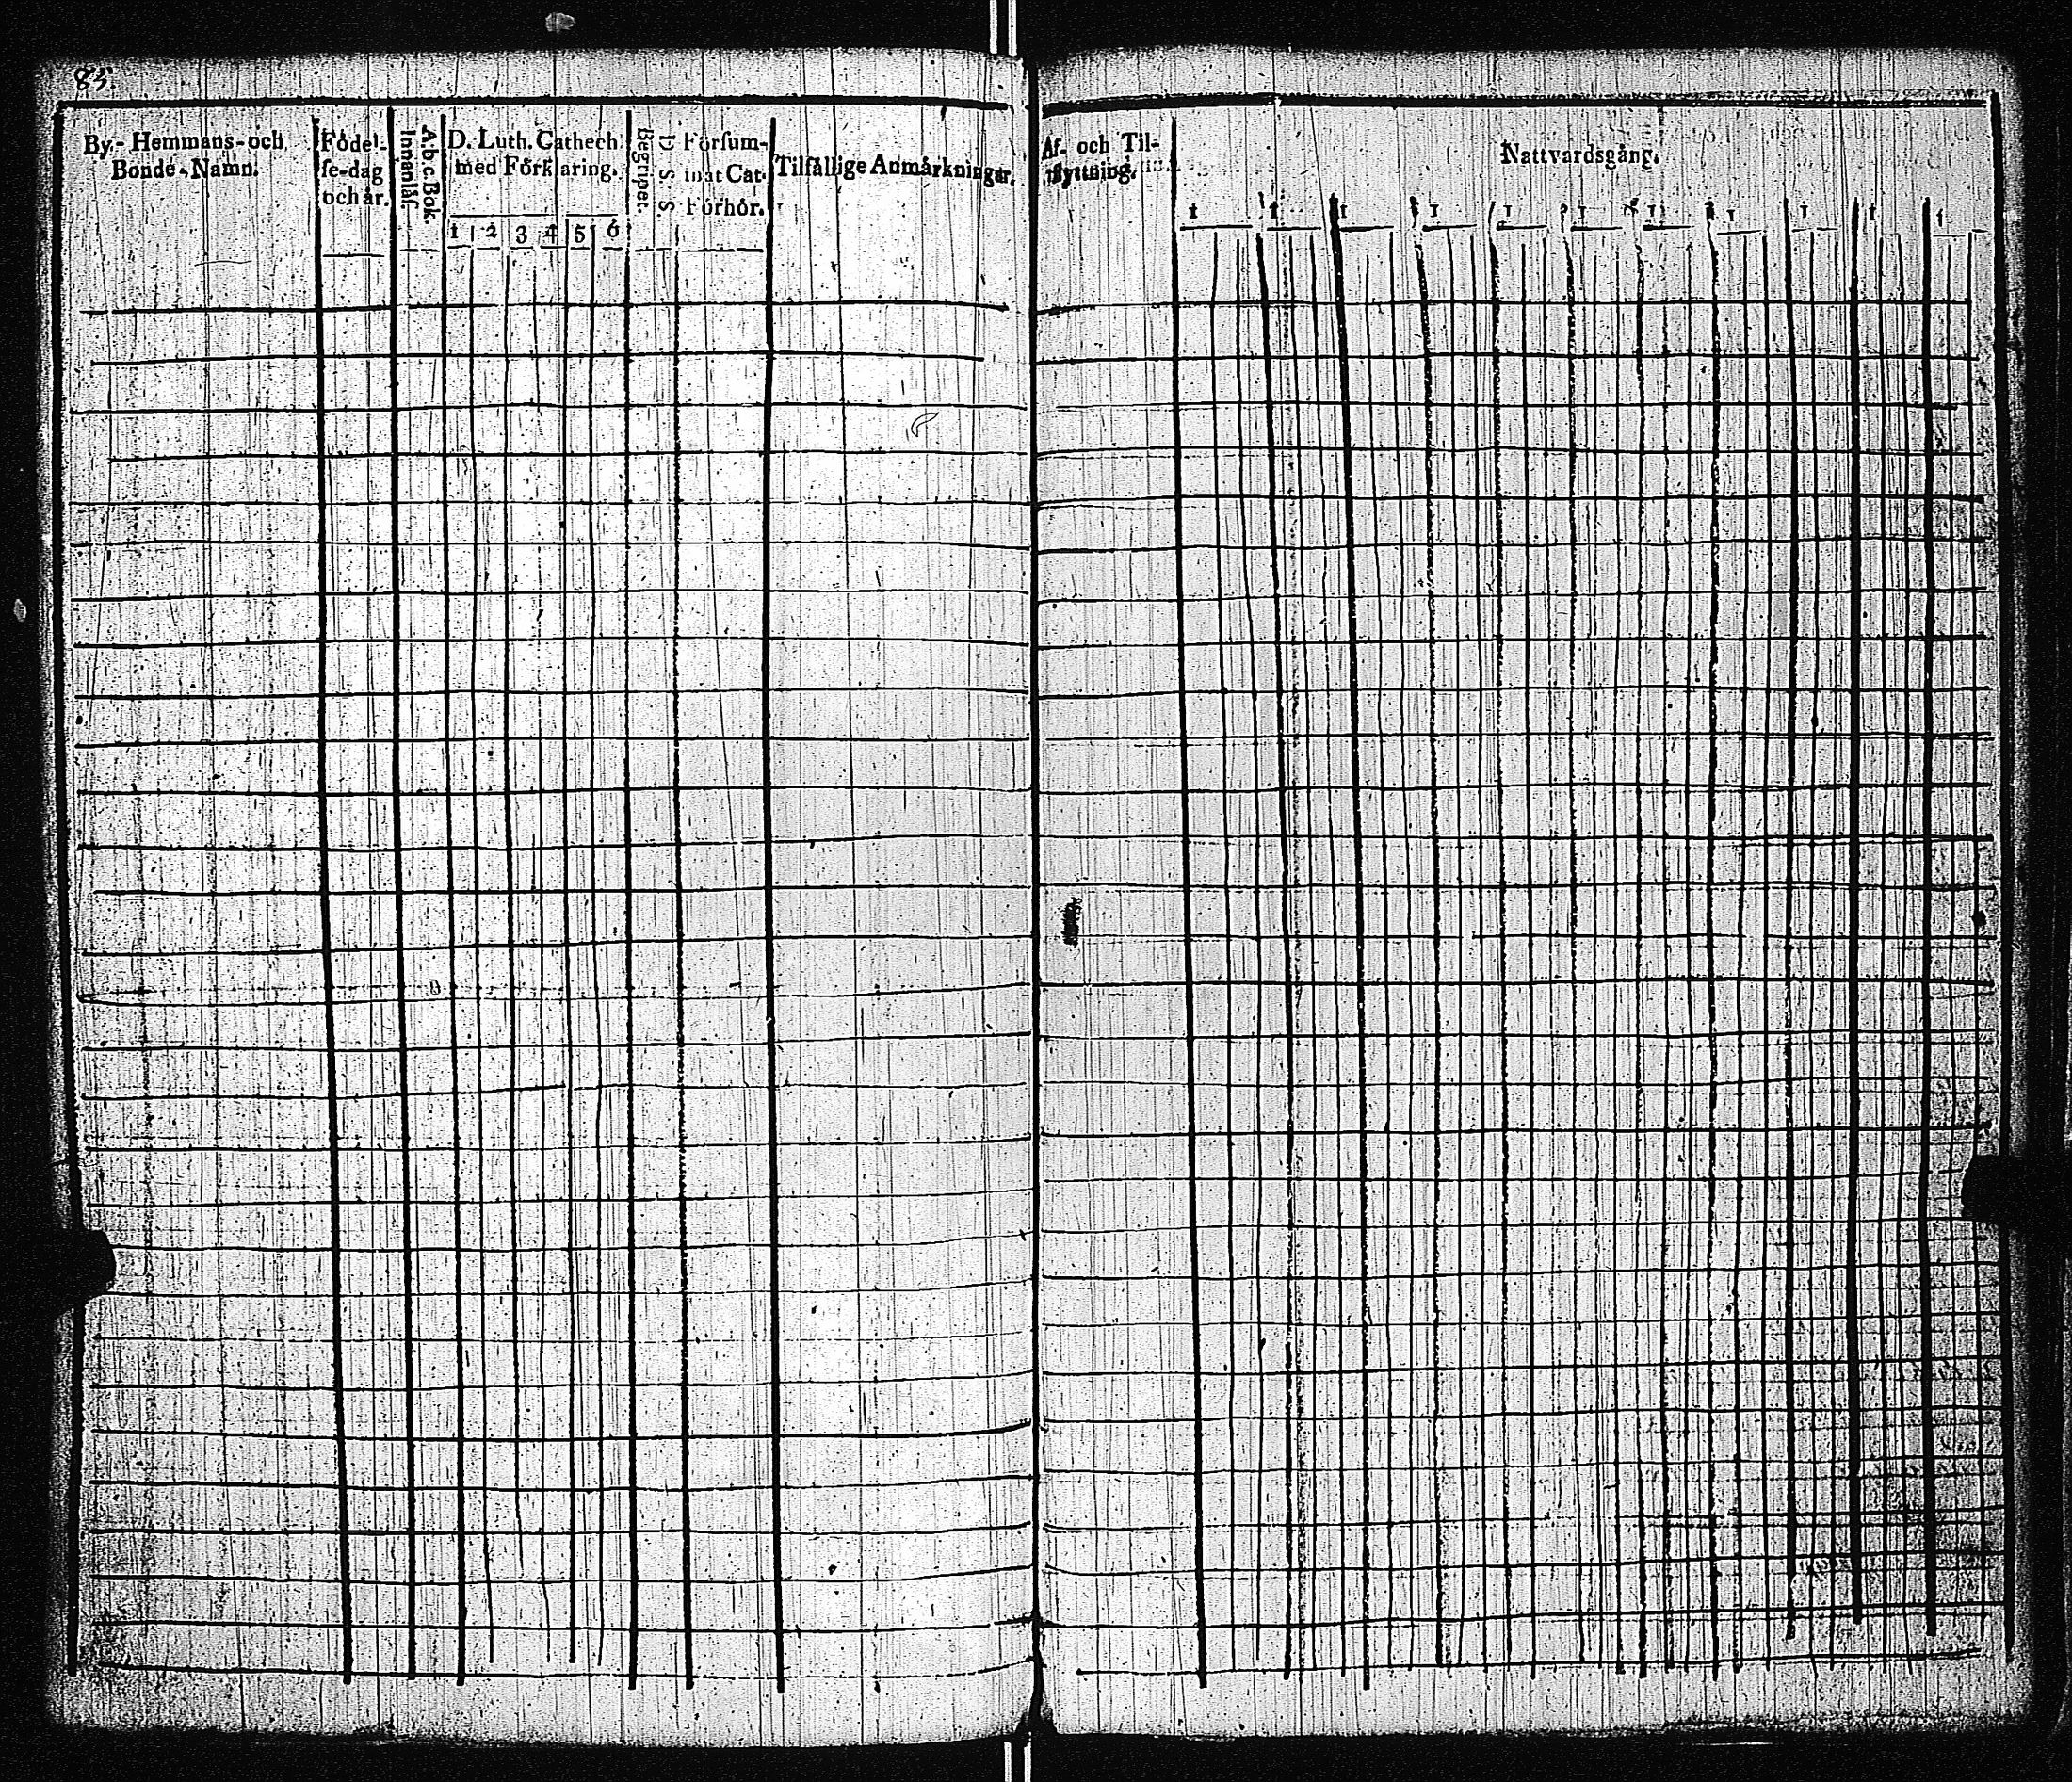 83.
By,- Hemmans- och
Bonde, Namn.
Födel-
se-dag
och år.
A.b.c. Bok.
Innanläs.
D. Luth. Cathech.
med Förklaring.
1 2 3 4 5 6
Begriper.
D. S. S.
Försum-
mat Cat.
Förhör.
Tilfällige Anmärkningar.
Af- och Til-
flyttning.
Nattvardsgång.
1 1 1 1 1 1 1 1 1 1 1